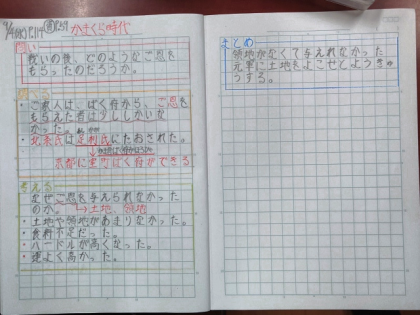 9/4(水)P.119 P.59 かまくら時代
問い
戦いの後、どのようなご恩を
もらったのだろうか。
調べる
・ご家人は、ばく府から、ご恩を
も与えた者は少ししかいな
かった。
・北条氏は足利氏にたおされた。
京都に室町ばく府ができる
考える
なぜご恩を与えられなかった
のか。→土地、領地
・土地や領地があまりなかった。
・食料不足だった。
・ハードルが高くなった。
・運よく高かった。
まとめ
領地がなくて与えれなかった
元軍に土地をよこせとようきゅ
うする。